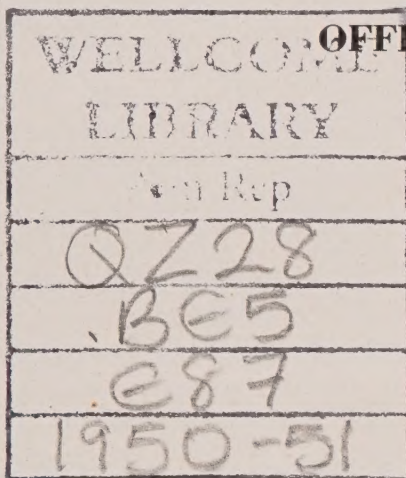 WELLCOME
LIBRARY
Ann Rep
QZ28
.BE5
E87
1950-51